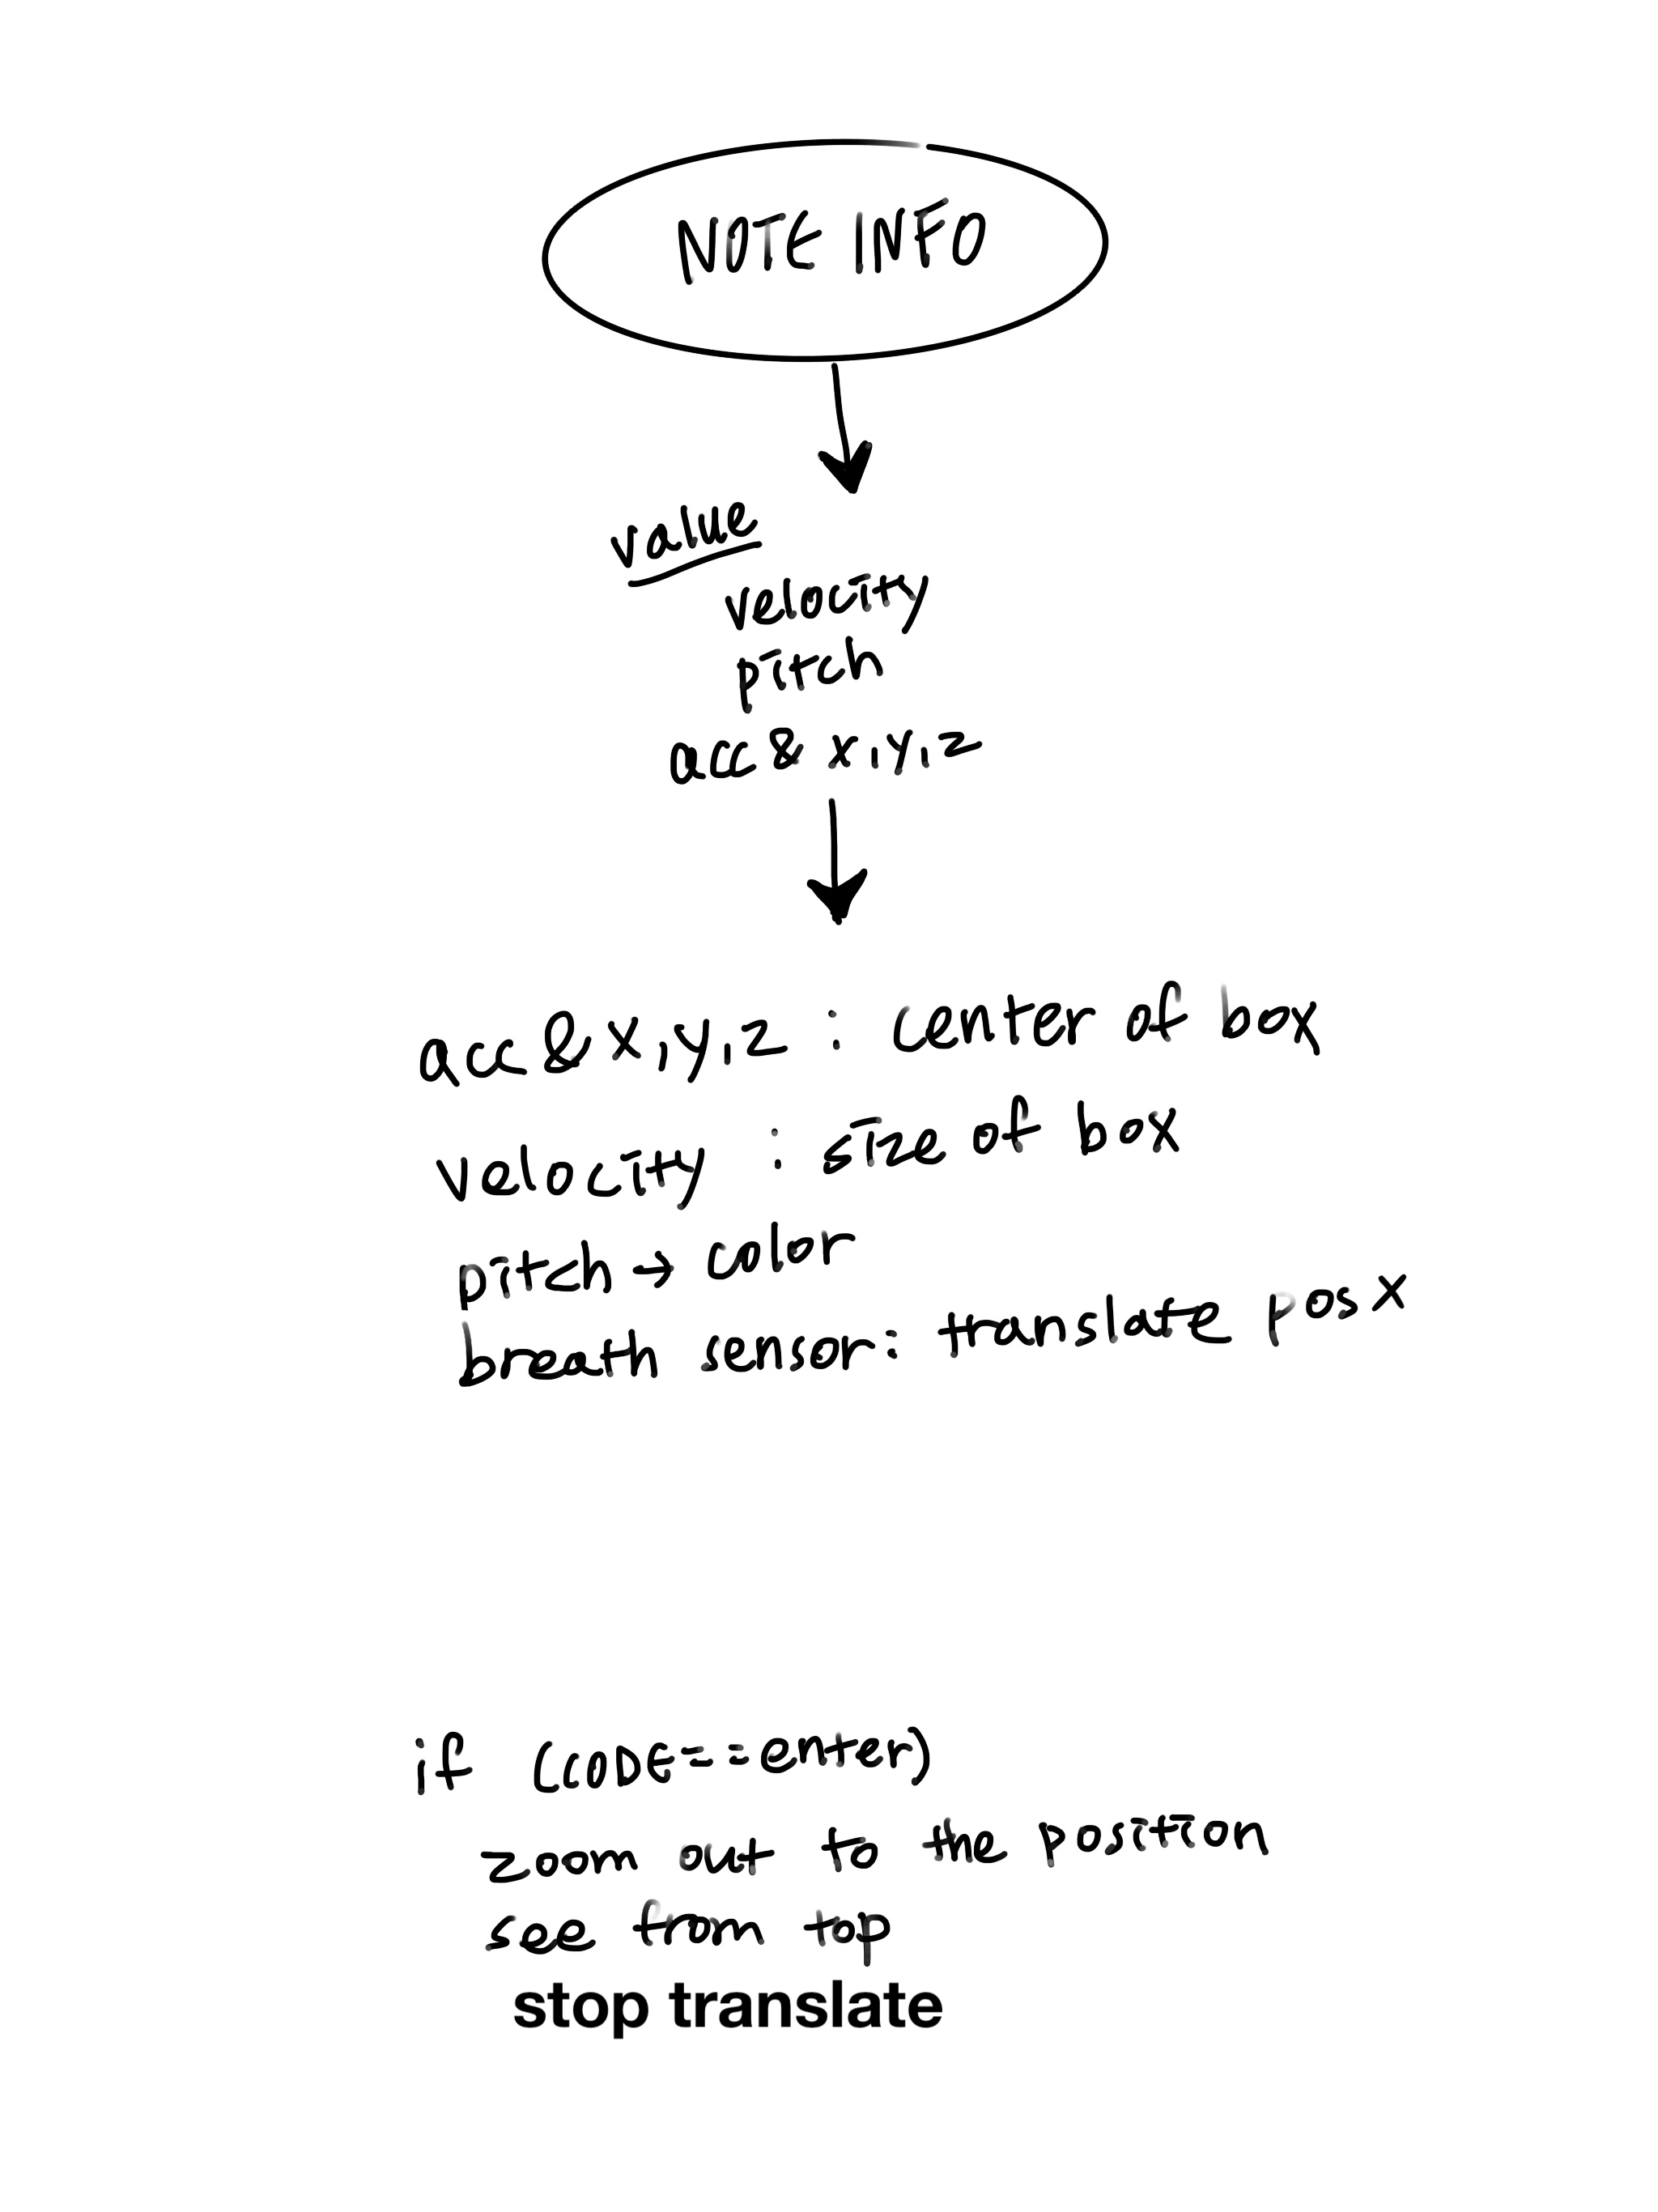 NOTE INFO
value
velocity
pitch
acc & x,y,z
acc & x,y,z : center of box
velocity : size of box
pitch → color
breath sensor: translate pos x
if (CODE==enter)
zoom out to the position
see from top
stop translate